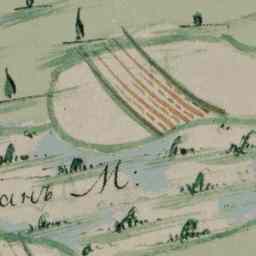 анъ М: